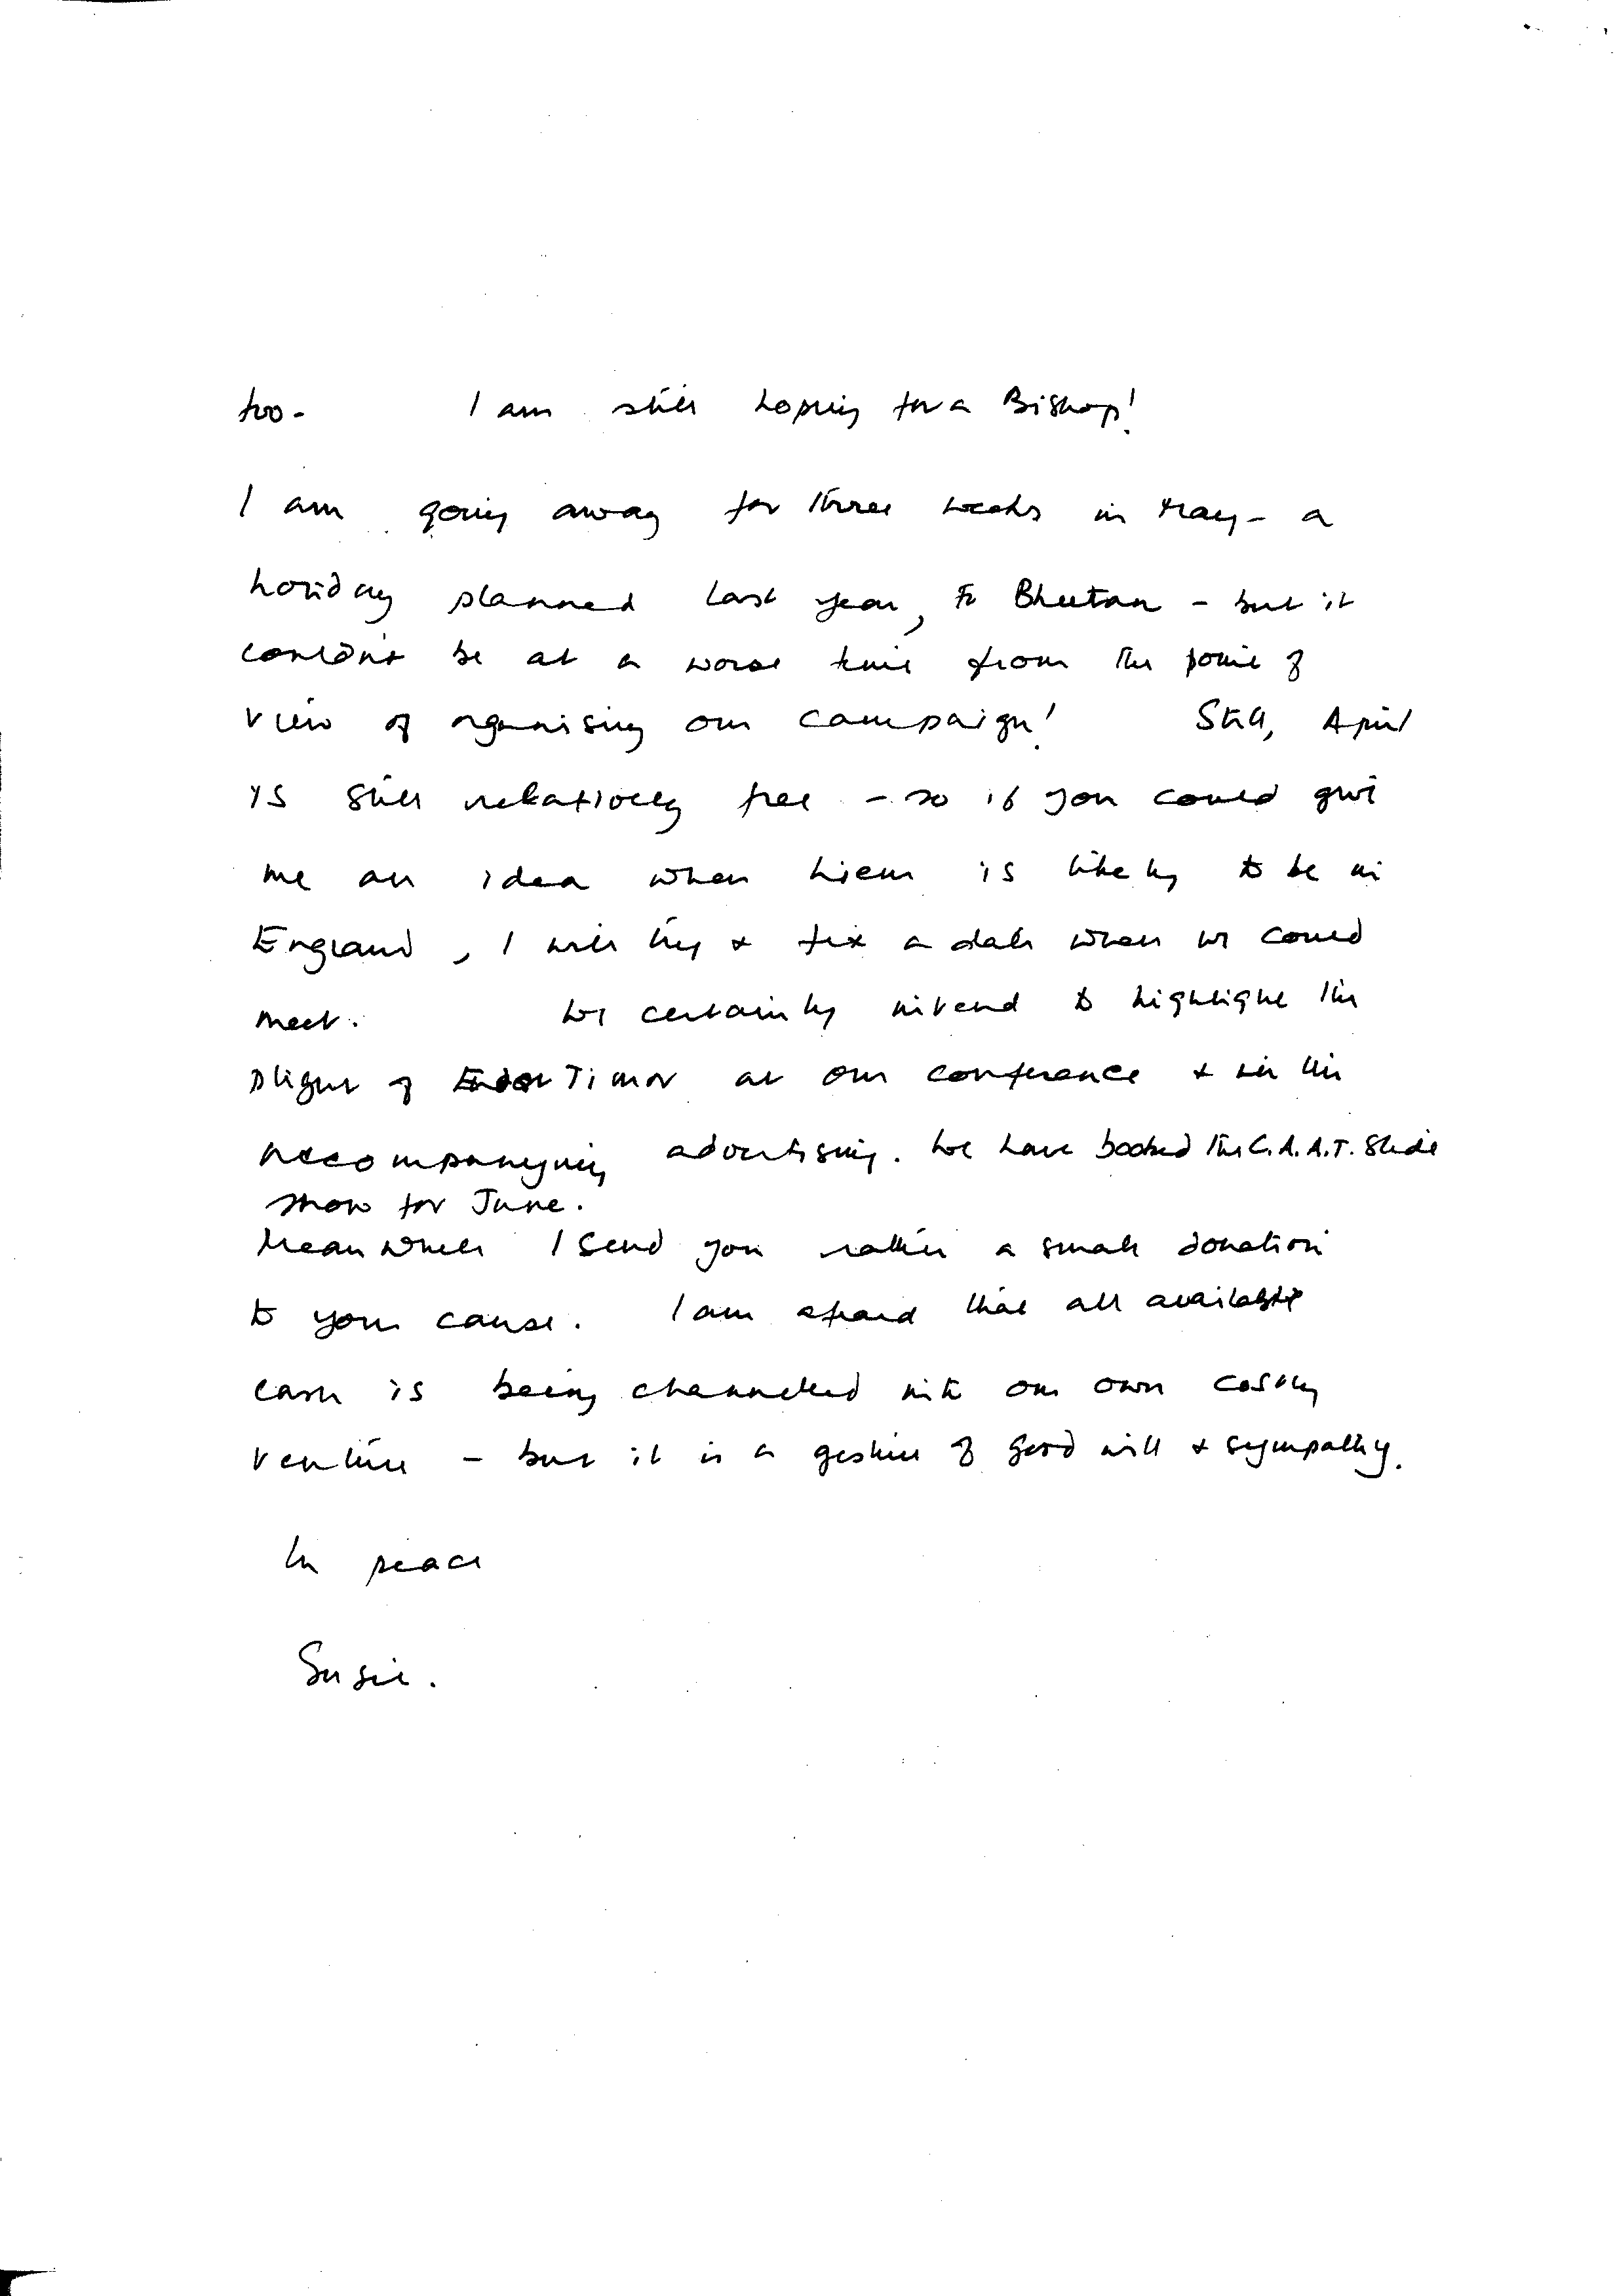 too - I am still hoping for a Bishop!
I am going away for three weeks in May - a
holiday planned last year, to Bhutan - but it
couldn't be at a worse time from the point of
view of organising our campaign! Still, April
is still relatively free - so if you could give
me an idea when Liem is likely to be in
England, I will try & fix a date when we could
meet. We certainly intend to highlight the
plight of East Timor at our conference & in the
accompanying advertising. We have booked the C.A.A.T. Slide
show for June.
Meanwhile I send you rather a small donation
to your cause. I am afraid that all available
cash is being channelled into our own costly
venture - but it is a gesture of good will & sympathy.
In peace
Susie.